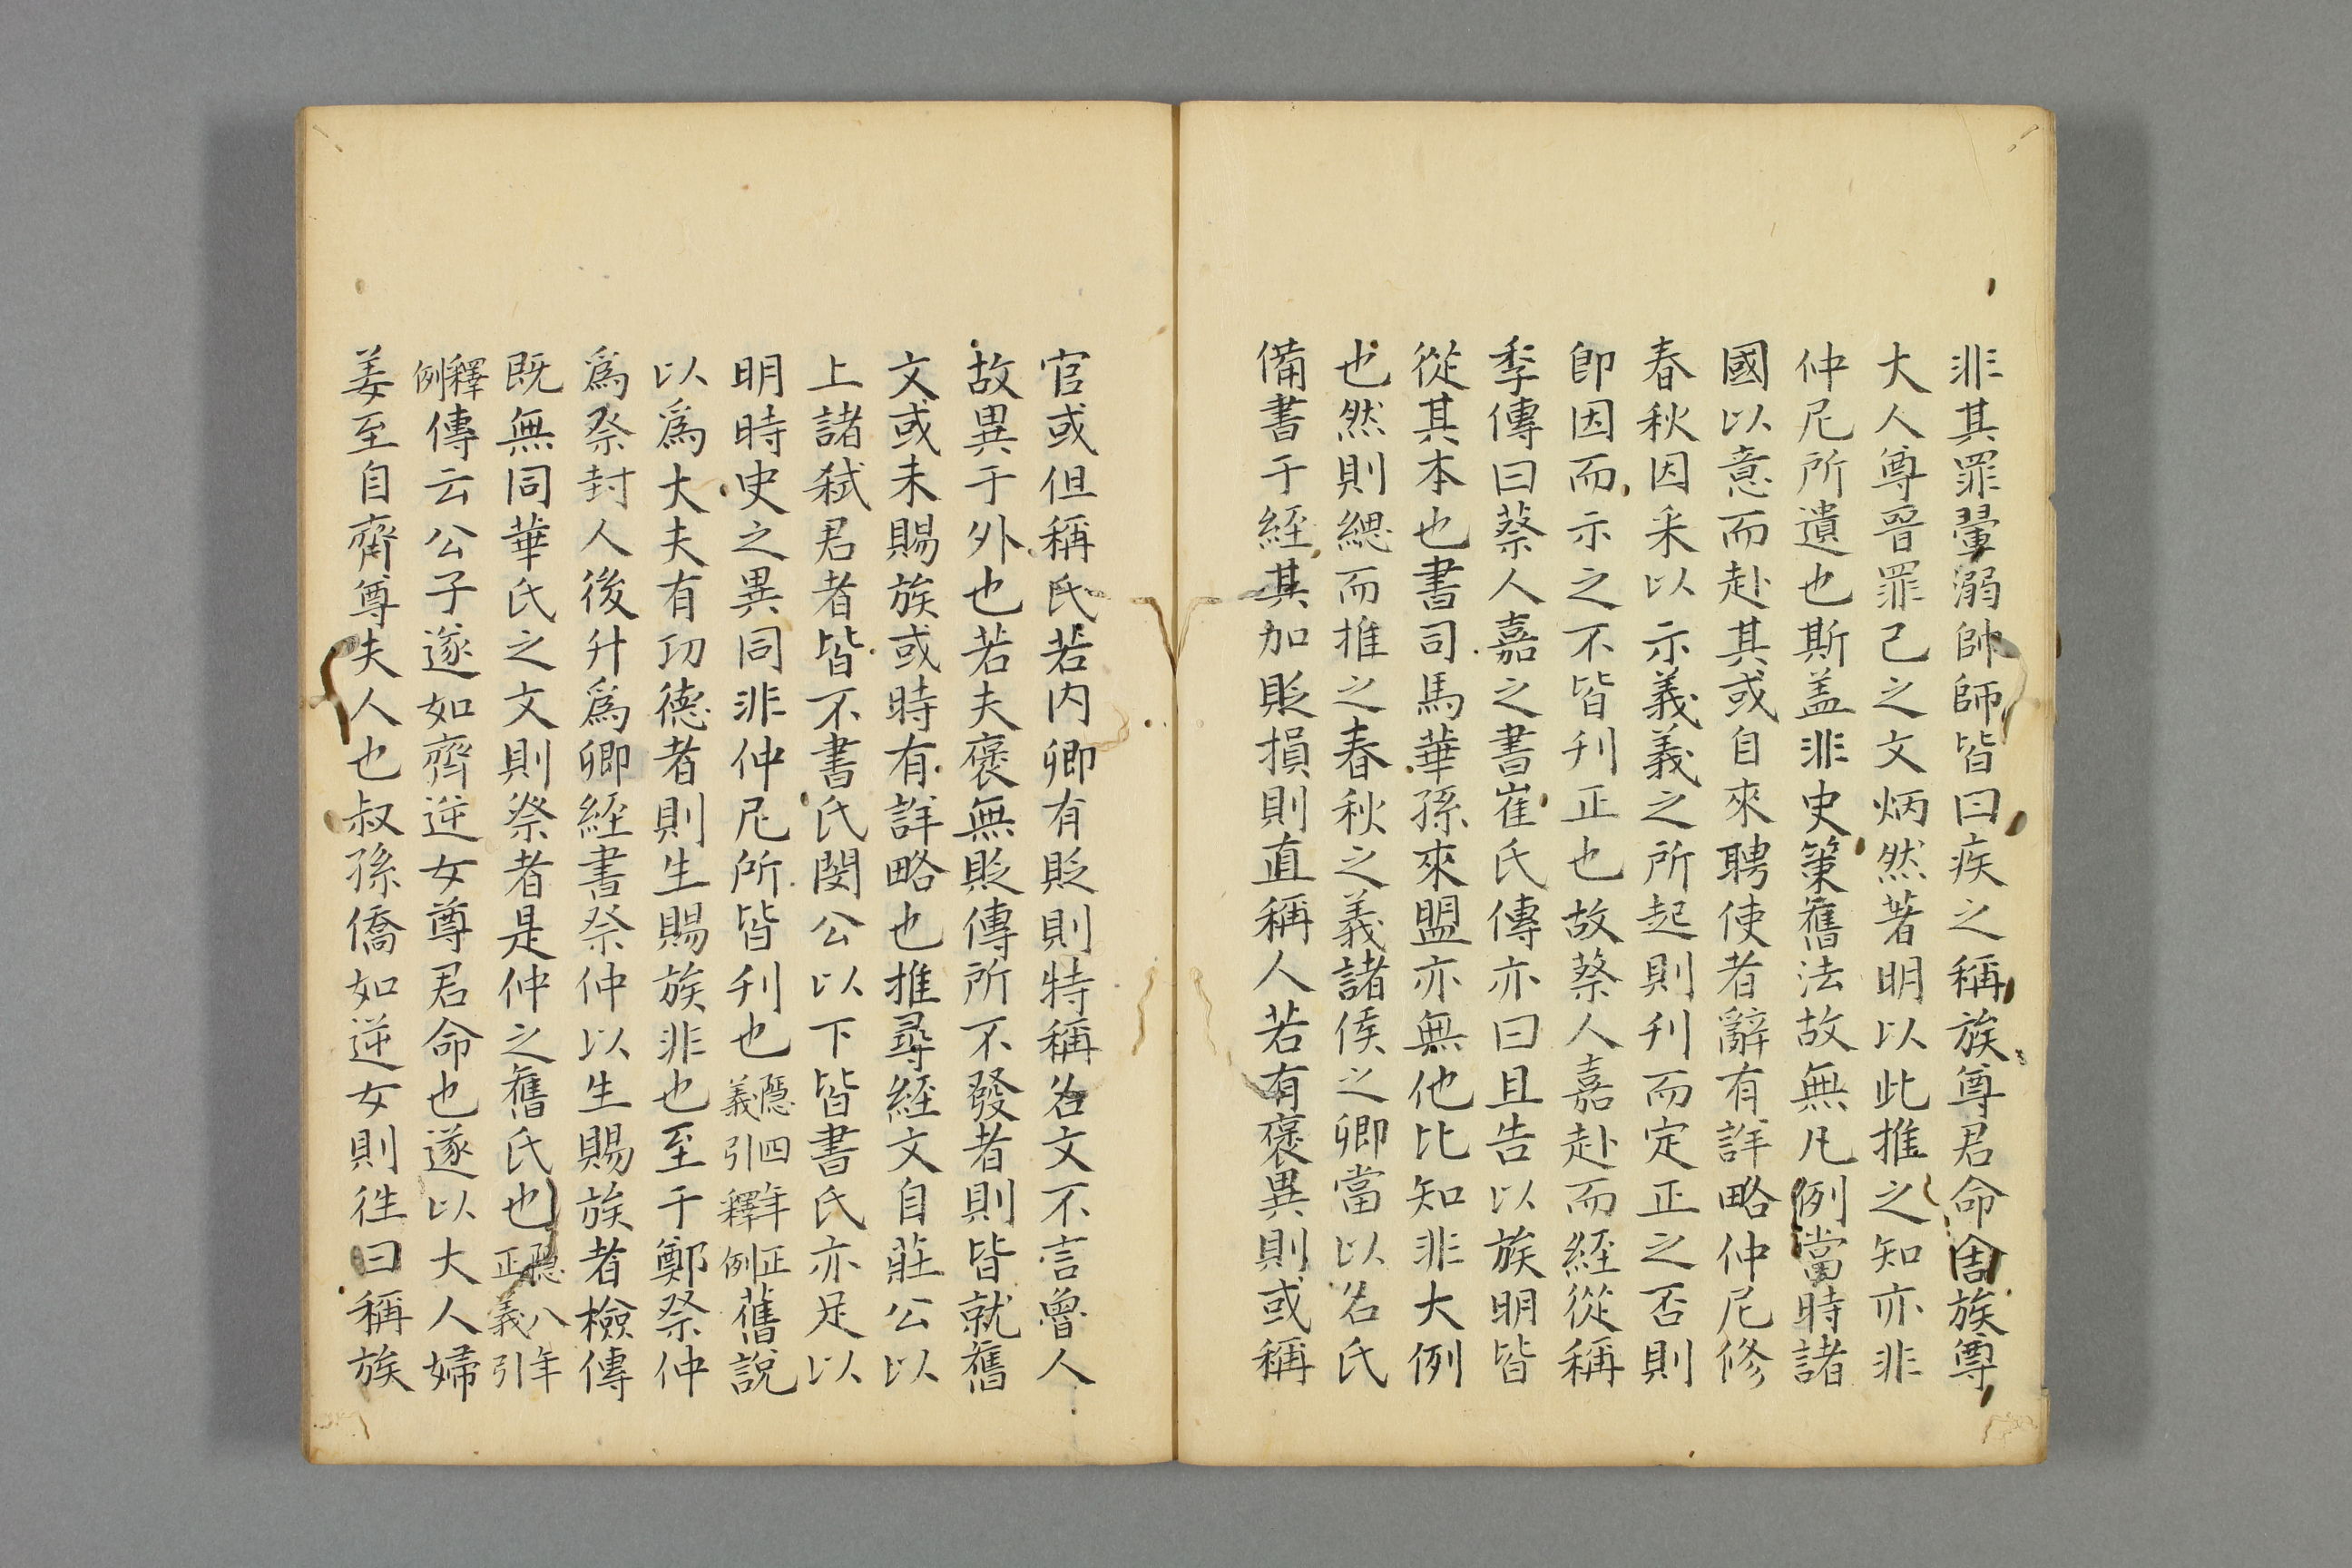 非其罪翬溺帥師皆曰疾之稱族尊君命舍族尊
大人尊晉罪己之文炳然著明以此推之知亦非
仲尼所遺也斯盖非史策舊法故無凡例當時諸
國以意而赴其或自來聘使者辭有詳略仲尼修
春秋因采以示義義之所起則刋而定正之否則
即因而示之不皆刋正也故蔡人嘉赴而經從稱
季傳曰蔡人嘉之書崔氏傳亦曰且告以族明皆
從其本也書司馬華孫來盟亦無他比知非大例
也然則緫而推之春秋之義諸侯之卿當以名氏
備書于經其加貶損則直稱人若有褒異則或稱
官或但稱氏若内卿有貶則特稱名文不言魯人
故異于外也若夫褒無貶傳所不發者則皆就舊
文或未賜族或時有詳略也推尋經文自莊公以
上諸弑君者皆不書氏閔公以下皆書氏亦足以
明時史之異同非仲尼所皆刋也隱四年正義引釋例舊說
以爲大夫有功德者則生賜族非也至于鄭祭仲
爲祭封人後升爲卿經書祭仲以生賜族者檢傳
既無同華氏之文則祭者是仲之舊氏也隱八年正義引
釋例傳云公子遂如齊逆女尊君命也遂以大人婦
姜至自齊尊夫人也叔孫僑如逆女則徃曰稱族